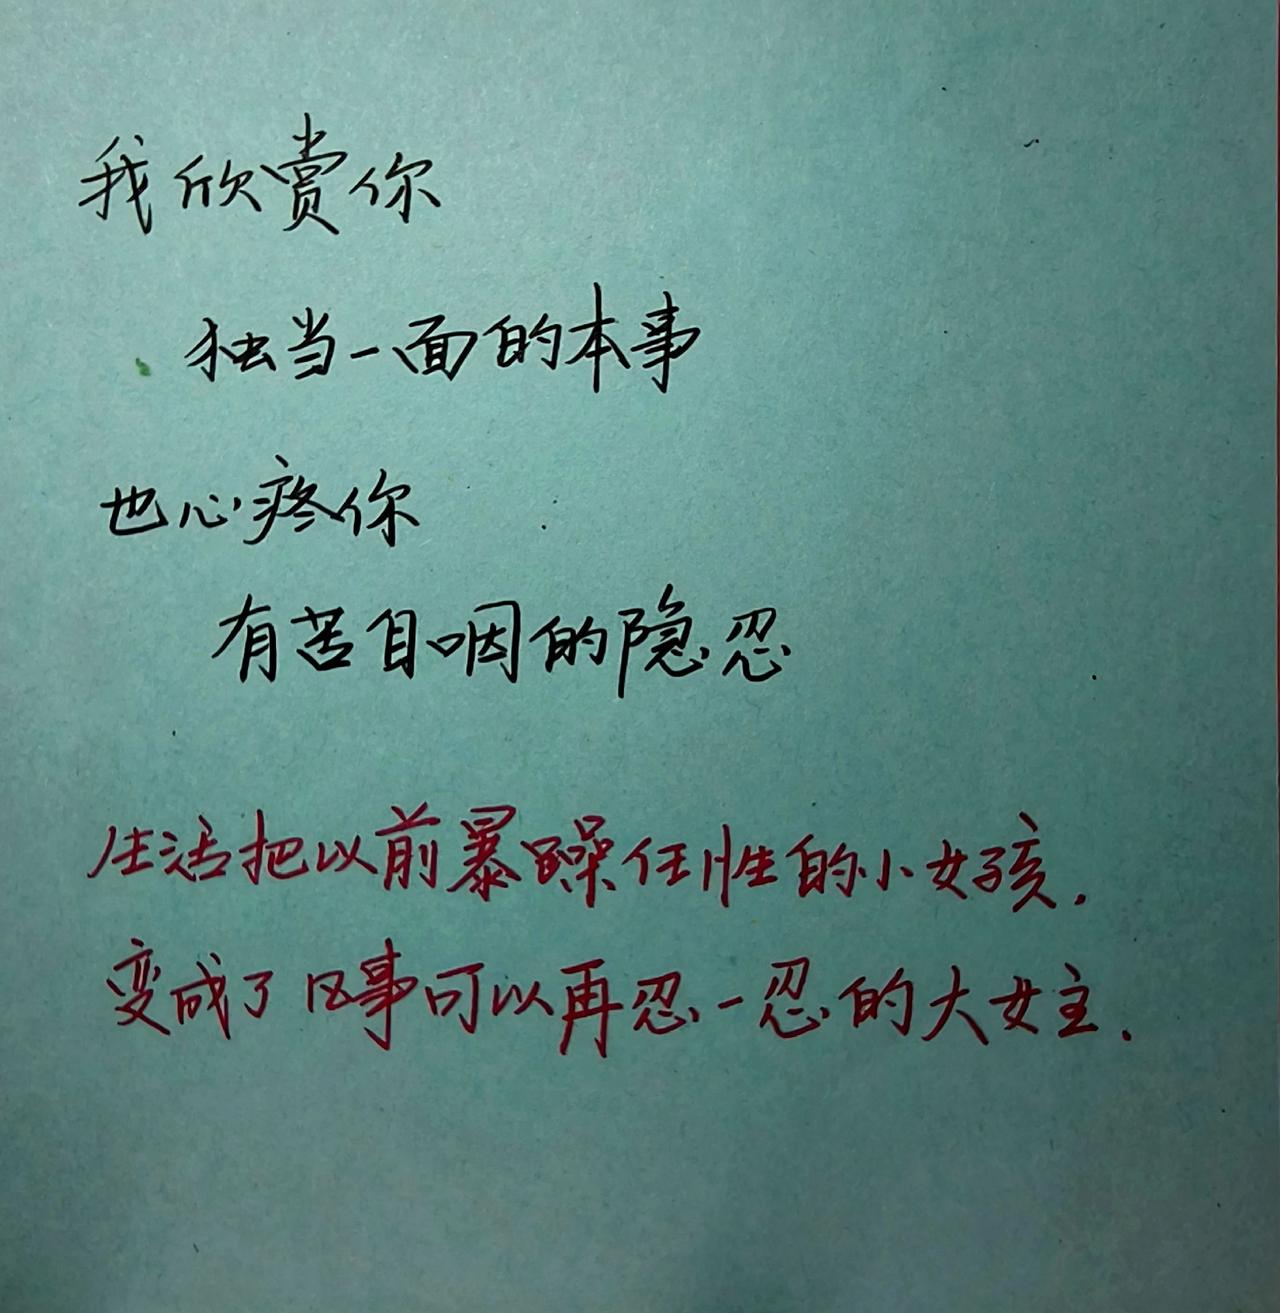 我欣赏你
独当一面的本事
也心疼你
有苦自咽的隐忍
生活把以前暴躁任性的小女孩.
变成了凡事可以再忍一忍的大女主.